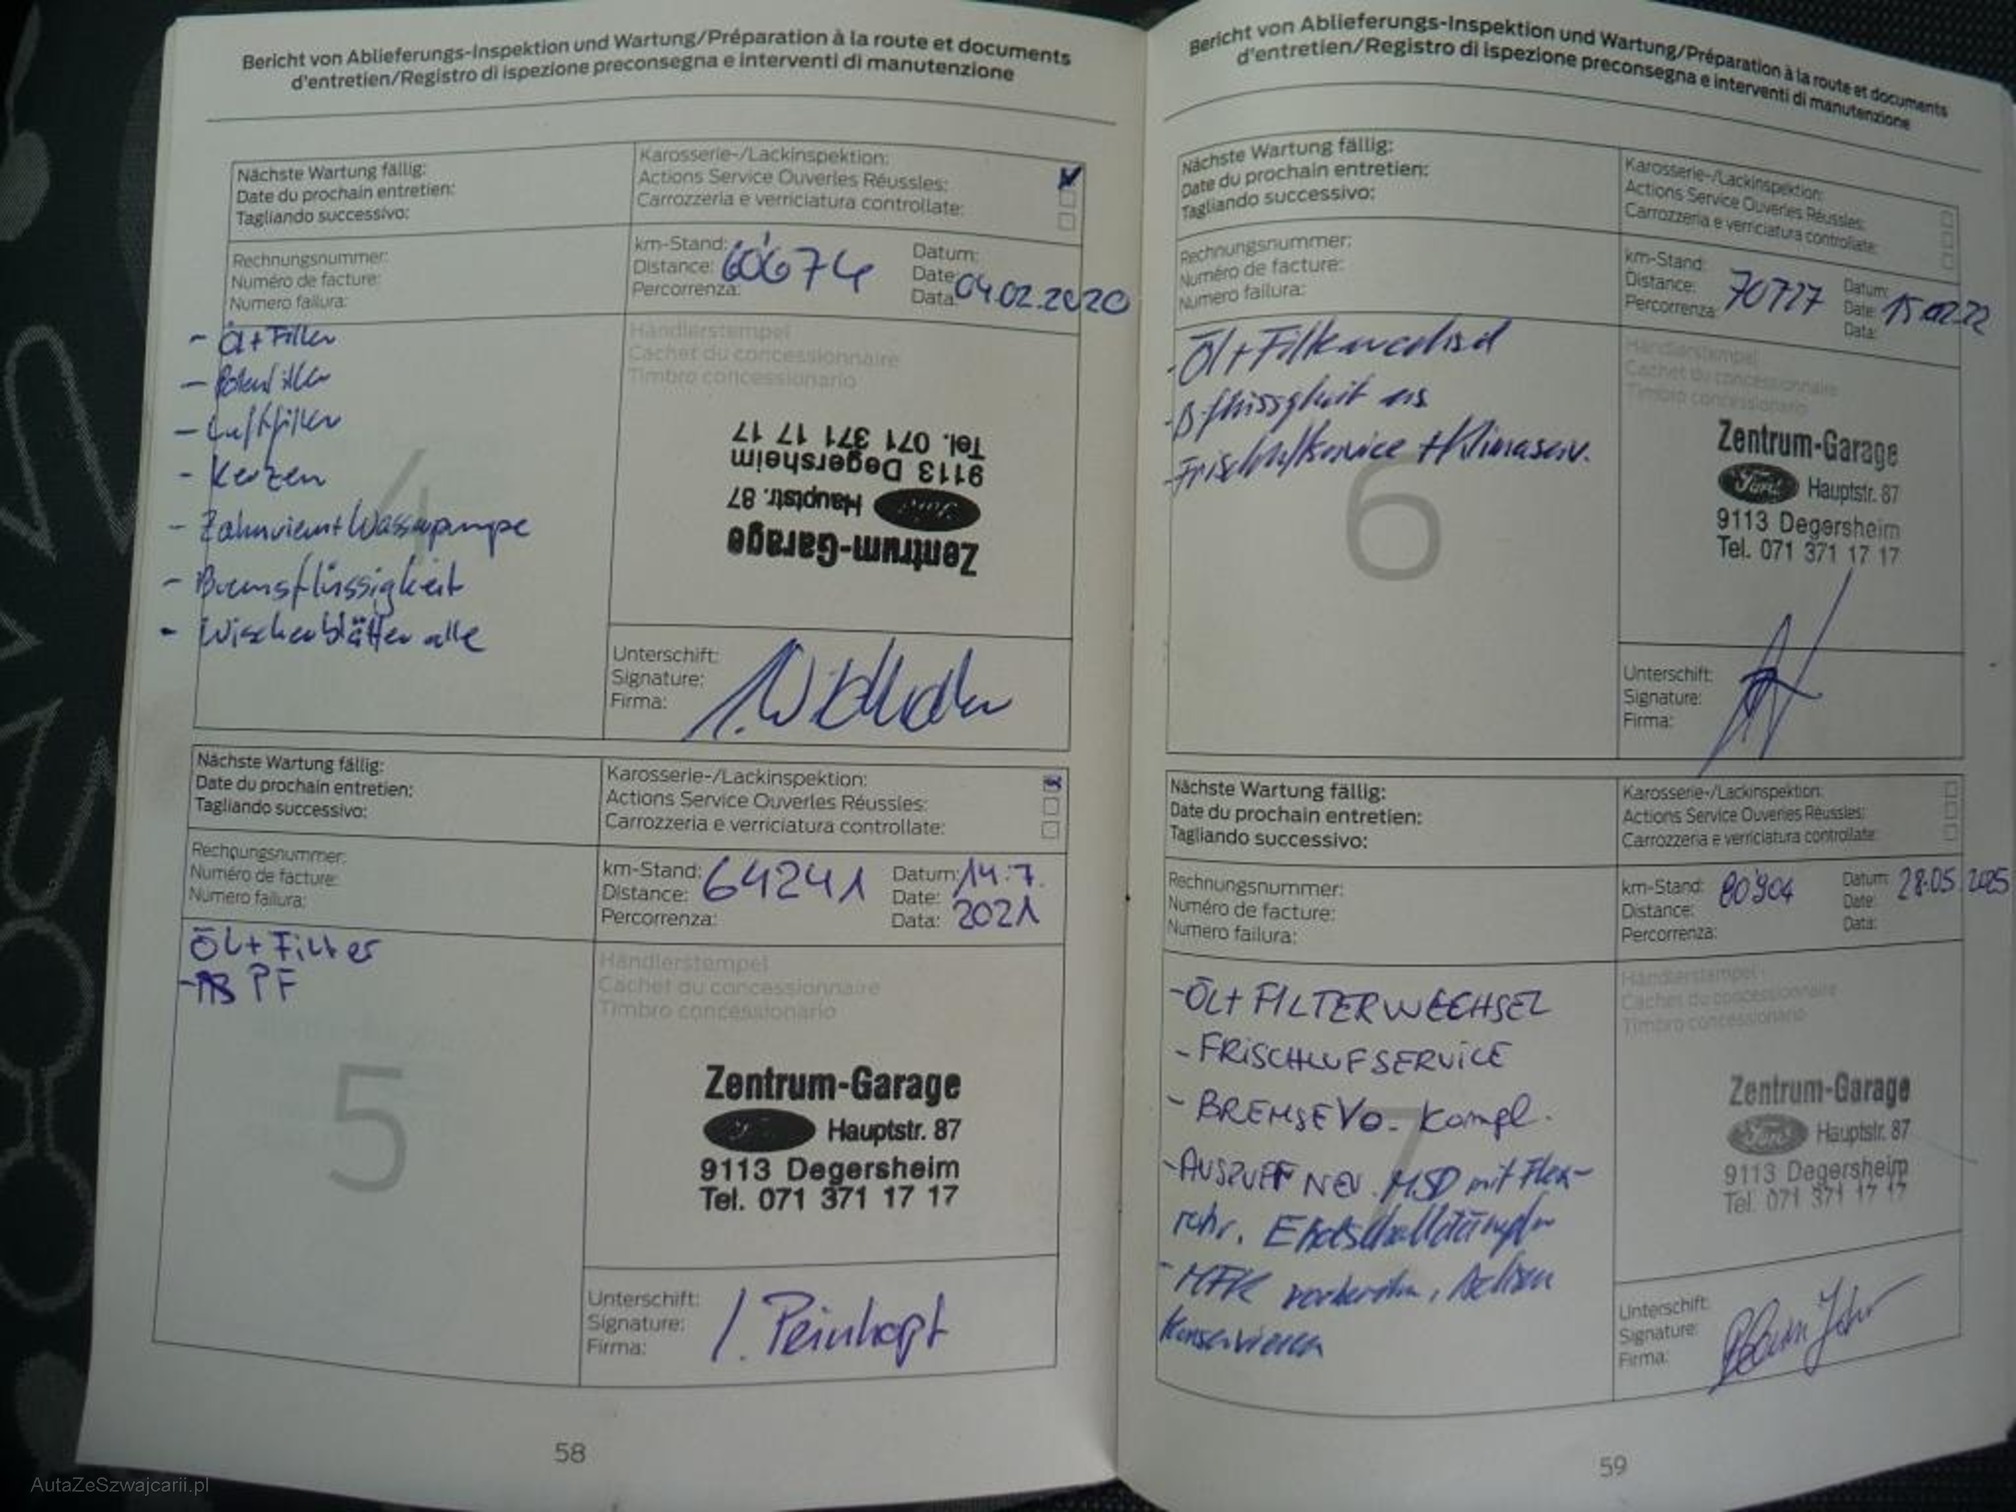 Bericht von Ablieferungs-Inspektion und Wartung/Préparation à la route et documents
d'entretien/Registro di ispezione preconsegna e interventi di manutenzione
Nächste Wartung fällig:
Date du prochain entretien:
Tagliando successivo:
Karosserie-/Lackinspektion:
Actions Service Ouverles Réussles:
Carrozzeria e verriciatura controllate:
Rechnungsnummer:
Numéro de facture:
Numero failura:
km-Stand:
Distance: 60'674
Percorrenza:
Datum:
Date:
Data: 04.02.2020
- Öl + Filter
- Pollenfilter
- Luftfilter
- Kerzen
- Zahnriem + Wasserpumpe
- Bremsflüssigkeit
- Wischerblätter alle
4
Händlerstempel
Cachet du concessionnaire
Timbro concessionario
Zentrum-Garage
Ford Hauptstr. 87
9113 Degersheim
Tel. 071 371 17 17
Unterschift:
Signature:
Firma:
Nächste Wartung fällig:
Date du prochain entretien:
Tagliando successivo:
Karosserie-/Lackinspektion:
Actions Service Ouverles Réussles:
Carrozzeria e verriciatura controllate:
Rechnungsnummer:
Numéro de facture:
Numero failura:
km-Stand:
Distance: 64241
Percorrenza:
Datum: 14.7.
Date: 2021
Data:
ÖL + Filter
- PF
5
Händlerstempel
Cachet du concessionnaire
Timbro concessionario
Zentrum-Garage
Hauptstr. 87
9113 Degersheim
Tel. 071 371 17 17
Unterschift:
Signature:
Firma:
58
Bericht von Ablieferungs-Inspektion und Wartung/Préparation à la route et documents
d'entretien/Registro di ispezione preconsegna e interventi di manutenzione
Nächste Wartung fällig:
Date du prochain entretien:
Tagliando successivo:
Karosserie-/Lackinspektion:
Actions Service Ouverles Réussles:
Carrozzeria e verriciatura controllate:
Rechnungsnummer:
Numéro de facture:
Numero failura:
km-Stand:
Distance: 70727
Percorrenza:
Datum:
Date: 15.02.22
Data:
- Öl + Filterwechsel
- B.flüssigkeit ers
- Frischluftservice + Klimaserv.
6
Händlerstempel
Cachet du concessionnaire
Timbro concessionario
Zentrum-Garage
Ford Hauptstr. 87
9113 Degersheim
Tel. 071 371 17 17
Unterschift:
Signature:
Firma:
Nächste Wartung fällig:
Date du prochain entretien:
Tagliando successivo:
Karosserie-/Lackinspektion:
Actions Service Ouverles Réussles:
Carrozzeria e verriciatura controllate:
Rechnungsnummer:
Numéro de facture:
Numero failura:
km-Stand: 80'904
Distance:
Percorrenza:
Datum: 28.05.2025
Date:
Data:
- ÖL + FILTERWECHSEL
- FRISCHLUFSERVICE
- BREMSE VO. Kompl.
- AUSPUFF NEU. MSD mit Flex-
rohr, Endschalldämpfer
- MFK vorbereiten, Achsen
konservieren
7
Händlerstempel
Cachet du concessionnaire
Timbro concessionario
Zentrum-Garage
Ford Hauptstr. 87
9113 Degersheim
Tel. 071 371 17 17
Unterschift:
Signature:
Firma:
59
AutaZeSzwajcarii.pl